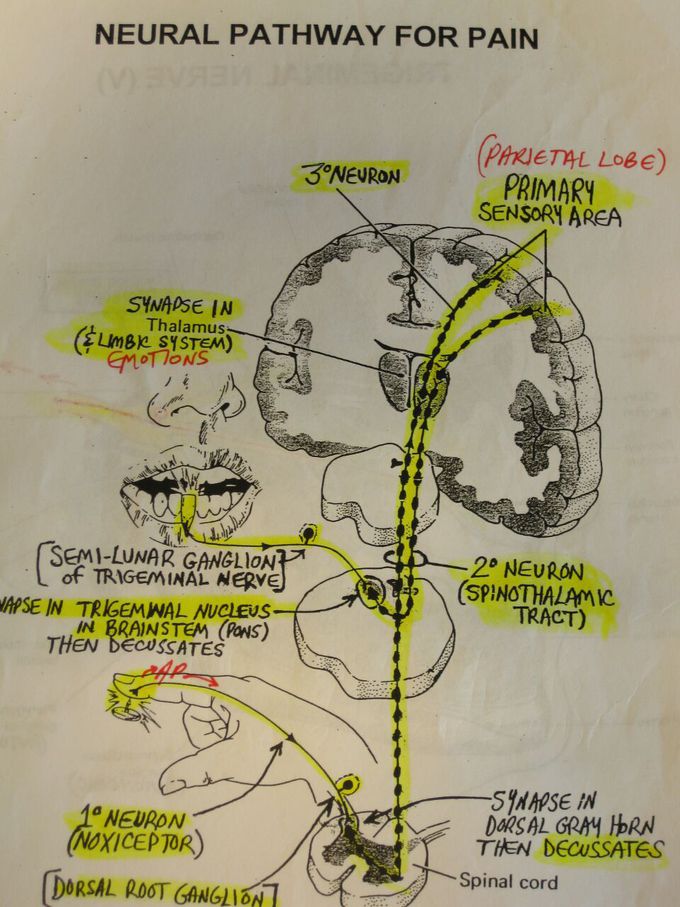 NEURAL PATHWAY FOR PAIN
TRIGEMINAL NERVE (V)
3° NEURON
(PARIETAL LOBE)
PRIMARY
SENSORY AREA
SYNAPSE IN
Thalamus
(& LIMBIC SYSTEM)
EMOTIONS
[SEMI-LUNAR GANGLION
of TRIGEMINAL NERVE]
2° NEURON
(SPINOTHALAMIC
TRACT)
NAPSE IN TRIGEMINAL NUCLEUS
IN BRAINSTEM (PONS)
THEN DECUSSATES
AP
1° NEURON
(NOXICEPTOR)
SYNAPSE IN
DORSAL GRAY HORN
THEN DECUSSATES
Spinal cord
[DORSAL ROOT GANGLION]